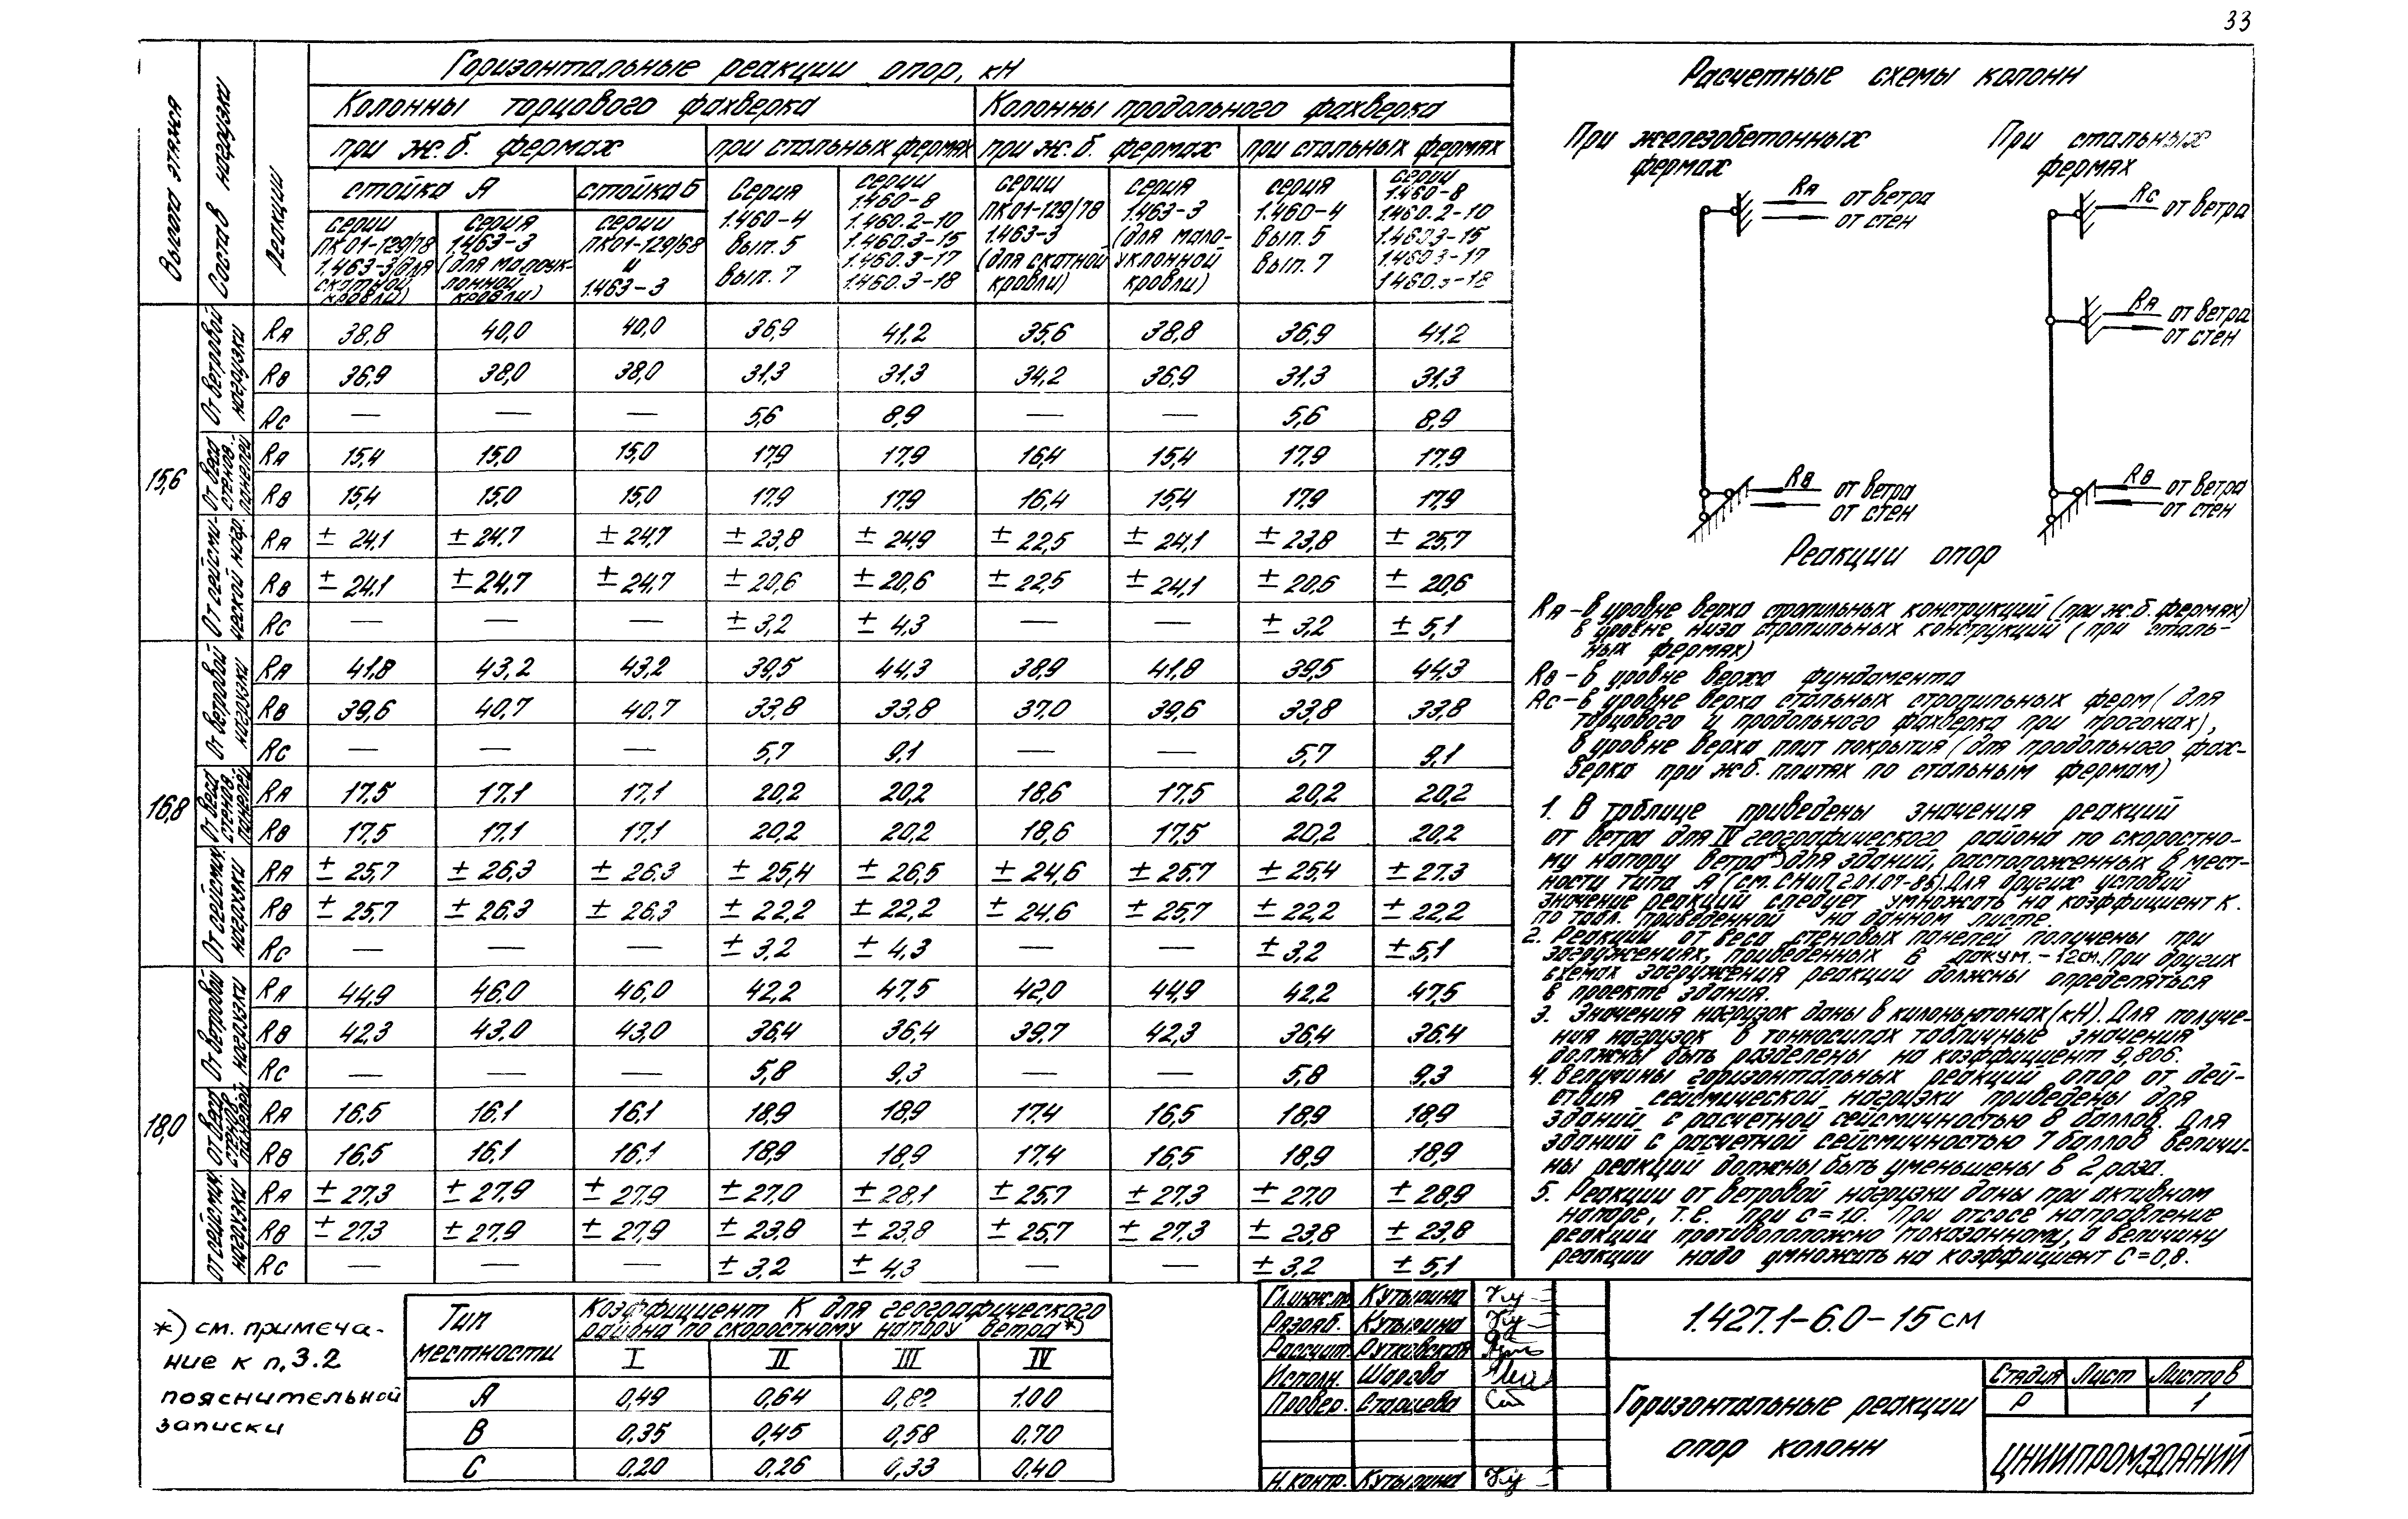 33
Горизонтальные реакции опор, кН
Колонны торцового фахверка
Колонны продольного фахверка
при ж.б. фермах
при стальных фермах
при ж.б. фермах
при стальных фермах
Высота этажа
Состав нагрузки
Реакции
стойка А
стойка Б
серии ПК01-129/78 1.463-3 (для скатной кровли)
серия 1.463-3 (для малоуклонной кровли)
серии ПК01-129/68 и 1.463-3
Серия 1.460-4 вып. 5 вып. 7
серии 1.460-8 1.460.2-10 1.460.3-15 1.460.3-17 1.460.3-18
серии ПК01-129/78 1.463-3 (для скатной кровли)
серия 1.463-3 (для мало-уклонной кровли)
серия 1.460-4 вып. 5 вып. 7
серии 1.460-8 1.460.2-10 1.460.3-15 1.460.3-17 1.460.3-18
15,6
От ветровой нагрузки
RА 38,8 40,0 40,0 36,9 41,2 35,6 38,8 36,9 41,2
RВ 36,9 38,0 38,0 31,3 31,3 34,2 36,9 31,3 31,3
RС — — — 5,6 8,9 — — 5,6 8,9
От веса стенов. панелей
RА 15,4 15,0 15,0 17,9 17,9 16,4 15,4 17,9 17,9
RВ 15,4 15,0 15,0 17,9 17,9 16,4 15,4 17,9 17,9
От сейсми-ческой нагр.
RА ± 24,1 ± 24,7 ± 24,7 ± 23,8 ± 24,9 ± 22,5 ± 24,1 ± 23,8 ± 25,7
RВ ± 24,1 ± 24,7 ± 24,7 ± 20,6 ± 20,6 ± 22,5 ± 24,1 ± 20,6 ± 20,6
RС — — — ± 3,2 ± 4,3 — — ± 3,2 ± 5,1
16,8
От ветровой нагрузки
RА 41,8 43,2 43,2 39,5 44,3 38,9 41,8 39,5 44,3
RВ 39,6 40,7 40,7 33,8 33,8 37,0 39,6 33,8 33,8
RС — — — 5,7 9,1 — — 5,7 9,1
От веса стенов. панелей
RА 17,5 17,1 17,1 20,2 20,2 18,6 17,5 20,2 20,2
RВ 17,5 17,1 17,1 20,2 20,2 18,6 17,5 20,2 20,2
От сейсмич. нагрузки
RА ± 25,7 ± 26,3 ± 26.3 ± 25,4 ± 26,5 ± 24,6 ± 25,7 ± 25,4 ± 27.3
RВ ± 25,7 ± 26,3 ± 26,3 ± 22,2 ± 22,2 ± 24,6 ± 25,7 ± 22,2 ± 22,2
RС — — — ± 3,2 ± 4,3 — — ± 3,2 ± 5,1
18,0
От ветровой нагрузки
RА 44,9 46.0 46.0 42,2 47,5 42,0 44,9 42,2 47,5
RВ 42,3 43.0 43,0 36,4 36,4 39,7 42,3 36,4 36.4
RС — — — 5,8 9,3 — — 5,8 9,3
От веса стенов. панелей
RА 16,5 16,1 16,1 18,9 18,9 17,4 16,5 18,9 18,9
RВ 16,5 16,1 16,1 18,9 18,9 17,4 16,5 18,9 18,9
От сейсмич. нагрузки
RА ± 27,3 ± 27,9 ± 27,9 ± 27,0 ± 28,1 ± 25,7 ± 27,3 ± 27,0 ± 28,9
RВ ± 27,3 ± 27,9 ± 27,9 ± 23,8 ± 23,8 ± 25,7 ± 27,3 ± 23,8 ± 23,8
RС — — — ± 3,2 ± 4,3 — — ± 3,2 ± 5,1
Расчетные схемы колонн
При железобетонных фермах
При стальных фермах
RА от ветра
от стен
RВ от ветра
от стен
RС от ветра
RА от ветра
от стен
RВ от ветра
от стен
Реакции опор
RА – в уровне верха стропильных конструкций (при ж.б. фермах)
в уровне низа стропильных конструкций (при сталь-
ных фермах)
RВ – в уровне верха фундамента
RС – в уровне верха стальных стропильных ферм (для
торцового и продольного фахверка при прогонах),
в уровне верха плит покрытия (для продольного фах-
верка при ж.б. плитах по стальным фермам)
1. В таблице приведены значения реакций
от ветра для IV географического района по скоростно-
му напору ветра*) для зданий, расположенных в мест-
ности типа А (см. СНиП 2.01.07-85). Для других условий
значение реакций следует умножать на коэффициент К.
по табл. приведенной на данном листе.
2. Реакции от веса стеновых панелей получены при
загружениях, приведенных в докум. -12см. При других
схемах загружения реакции должны определяться
в проекте здания.
3. Значения нагрузок даны в килоньютонах (кН). Для получе-
ния нагрузок в тонносилах табличные значения
должны быть разделены на коэффициент 9,806.
4. Величины горизонтальных реакций опор от дей-
ствия сейсмической нагрузки приведены для
зданий с расчетной сейсмичностью 8 баллов. Для
зданий с расчетной сейсмичностью 7 баллов величи-
ны реакций должны быть уменьшены в 2 раза.
5. Реакции от ветровой нагрузки даны при активном
напоре, т.е. при с=1,0. При отсосе направление
реакции противоположно показанному, а величину
реакции надо умножать на коэффициент С=0,8.
*) см. примеча-
ние к п. 3.2
пояснительной
записки
Тип местности
Коэффициент К для географического
района по скоростному напору ветра*)
I II III IV
А 0,49 0,64 0,82 1.00
В 0,35 0,45 0,58 0,70
С 0,20 0,26 0,33 0,40
Гл.инж.пр. Кутырина
Разраб. Кутырина
Рассчит. Рутковская
Исполн. Шарова
Провер. Старцева
Н.контр. Кутырина
1.427.1-6.0-15см
Горизонтальные реакции
опор колонн
Стадия Лист Листов
Р 1
ЦНИИПРОМЗДАНИЙ